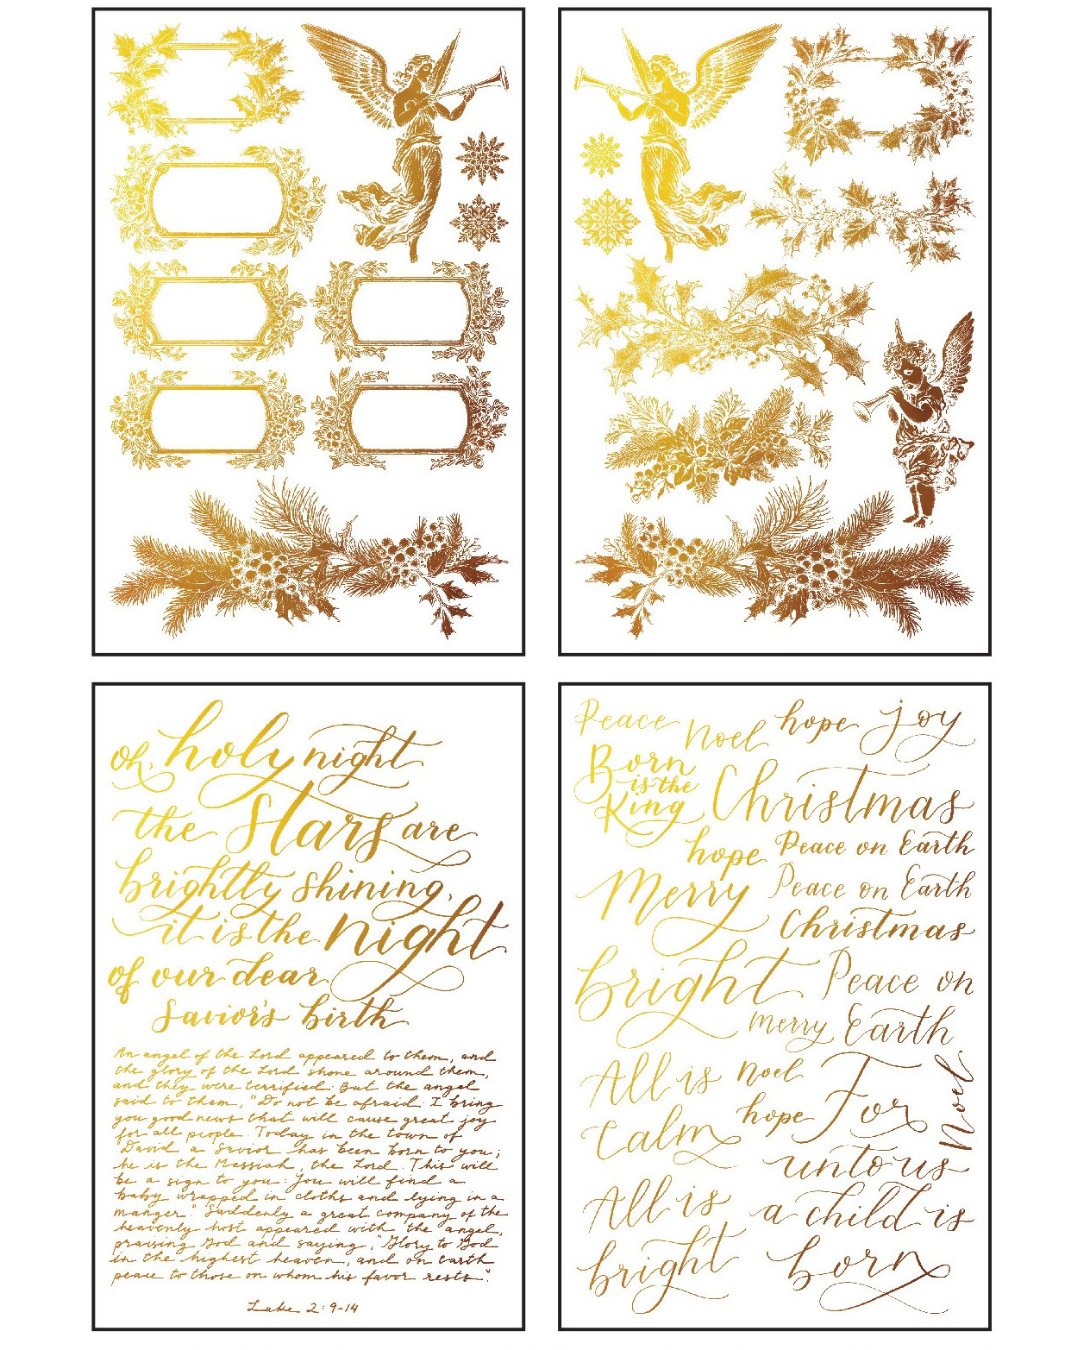 oh, holy night
the stars are
brightly shining,
it is the night
of our dear
Savior's birth
An angel of the Lord appeared to them, and
the glory of the Lord shone around them,
and they were terrified. But the angel
said to them, "Do not be afraid. I bring
you good news that will cause great joy
for all people. Today in the town of
David a Savior has been born to you;
he is the Messiah, the Lord. This will
be a sign to you: You will find a
baby wrapped in cloths and lying in a
manger." Suddenly a great company of the
heavenly host appeared with the angel,
praising God and saying, "Glory to God
in the highest heaven, and on earth
peace to those on whom his favor rests".
Luke 2:9-14
Peace Noel hope joy
Born
is the
King
Christmas
hope Peace on Earth
Merry Peace on Earth
Christmas
bright Peace on
Earth
merry
All is
Calm
noel
hope
Noel
For
unto us
a child is
born
All is
bright